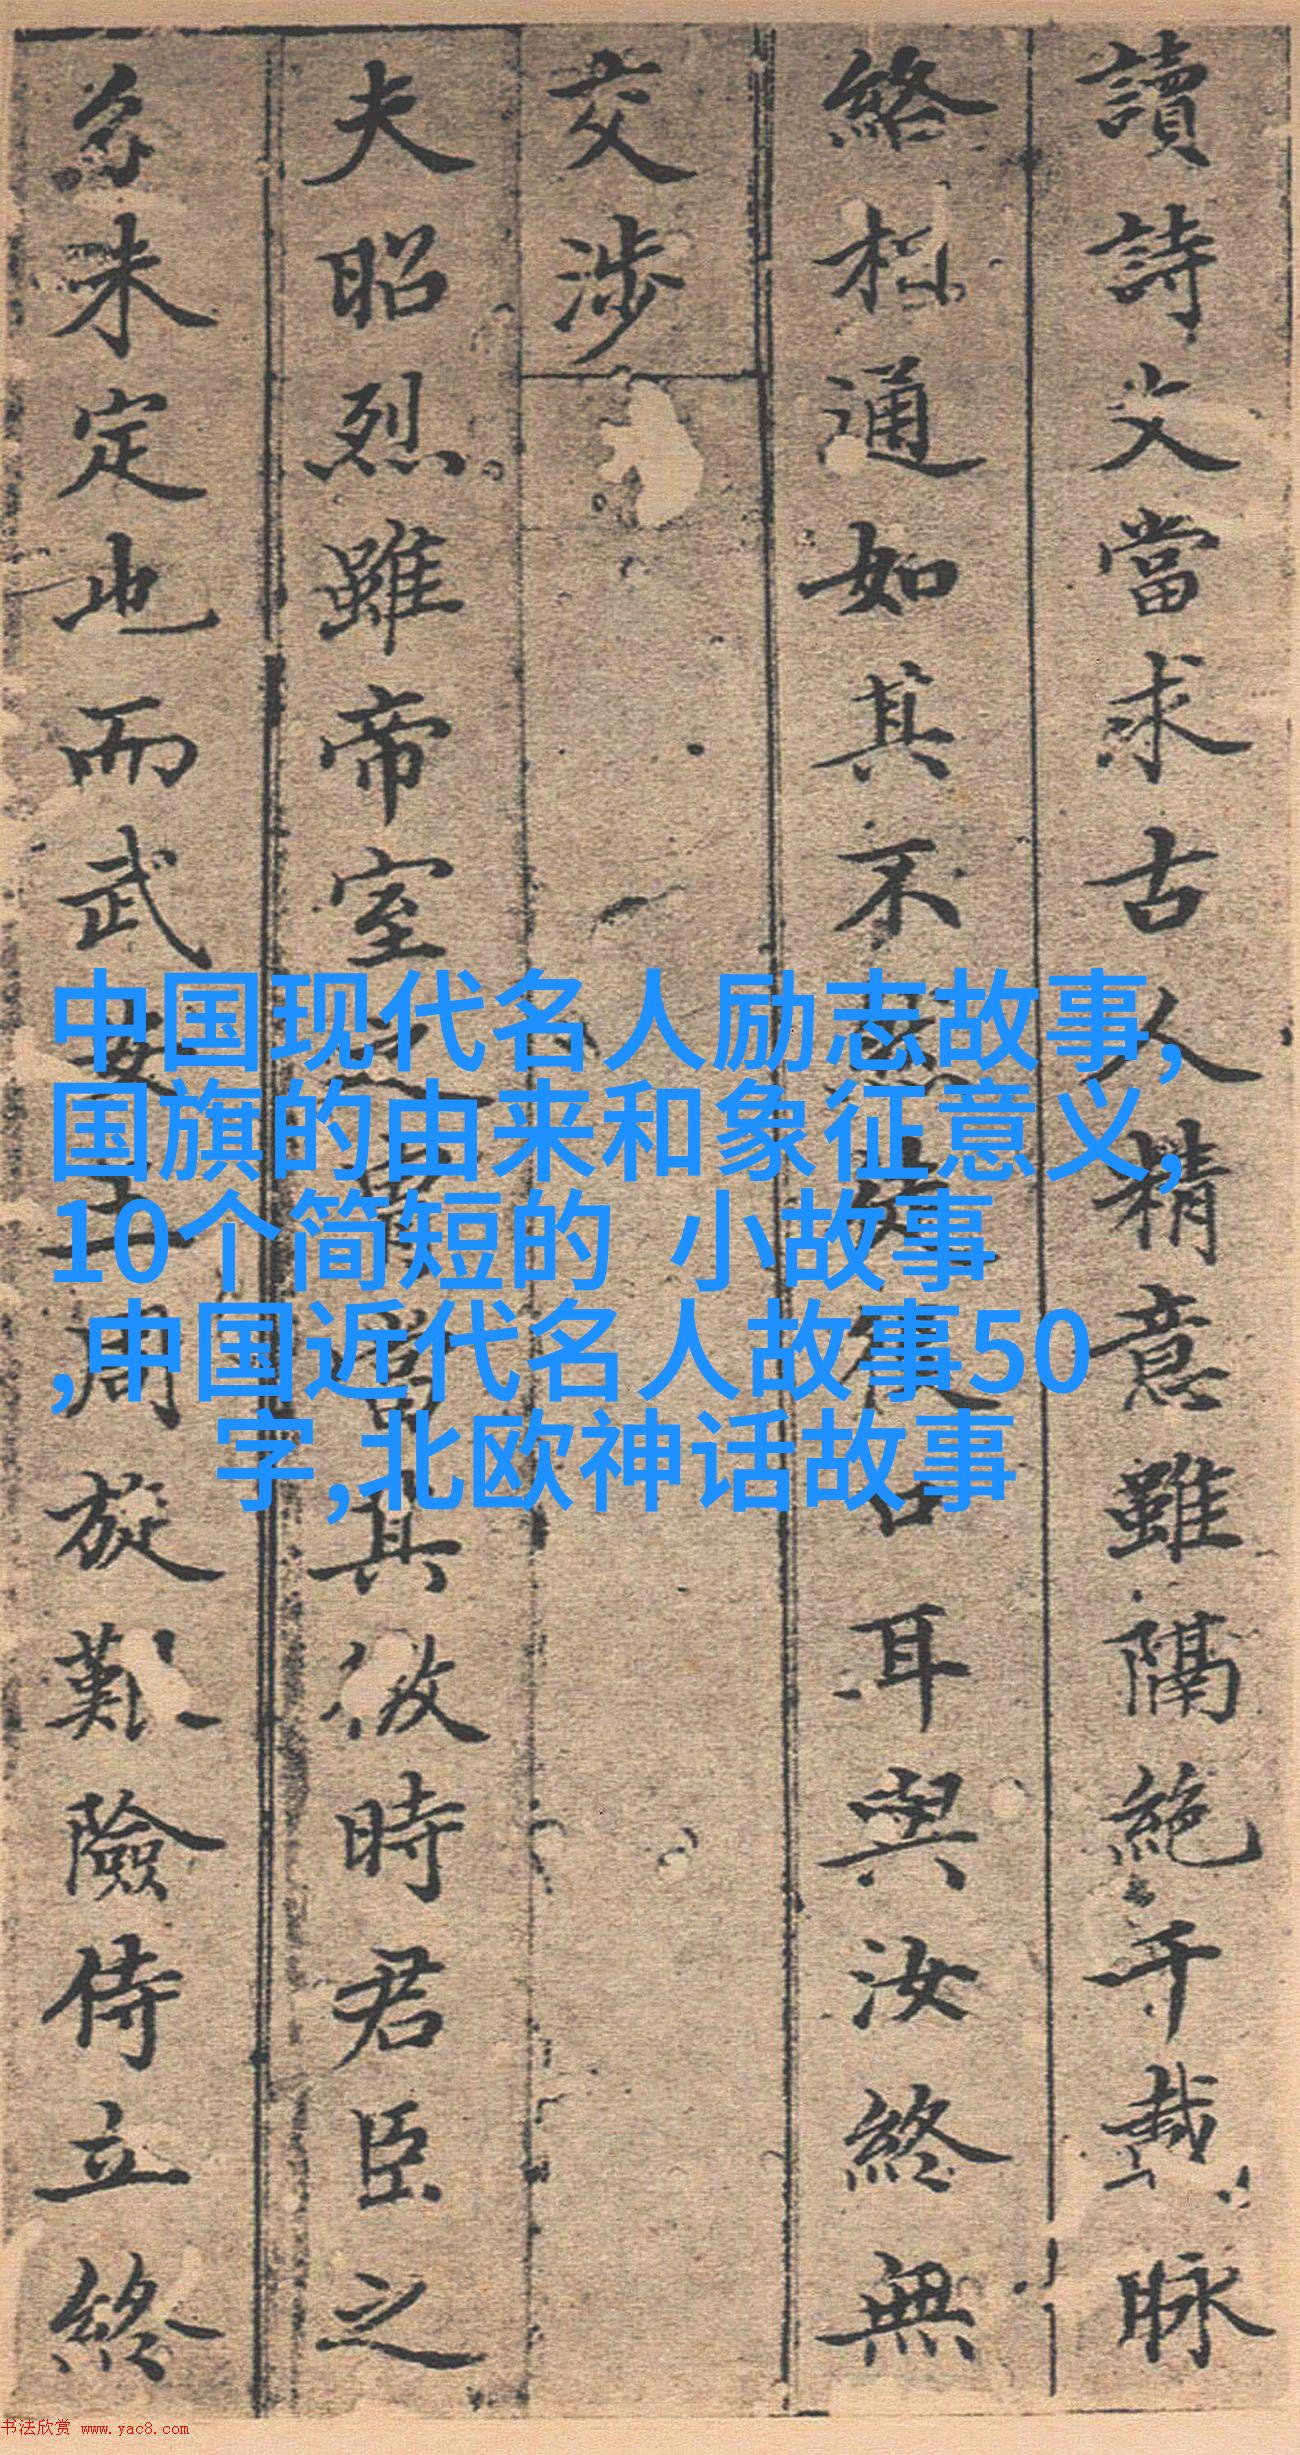 讀詩文當求古人精意雖隔絶千載脉
絡相通如其不
耳與汝終無
交涉
夫昭烈雖帝室
其
時君臣之
未定也而武
周旋難險侍立終
中国现代名人励志故事,
国旗的由来和象征意义,
10个简短的 小故事
,中国近代名人故事50
字,北欧神话故事
书法欣赏 www.yac8.com